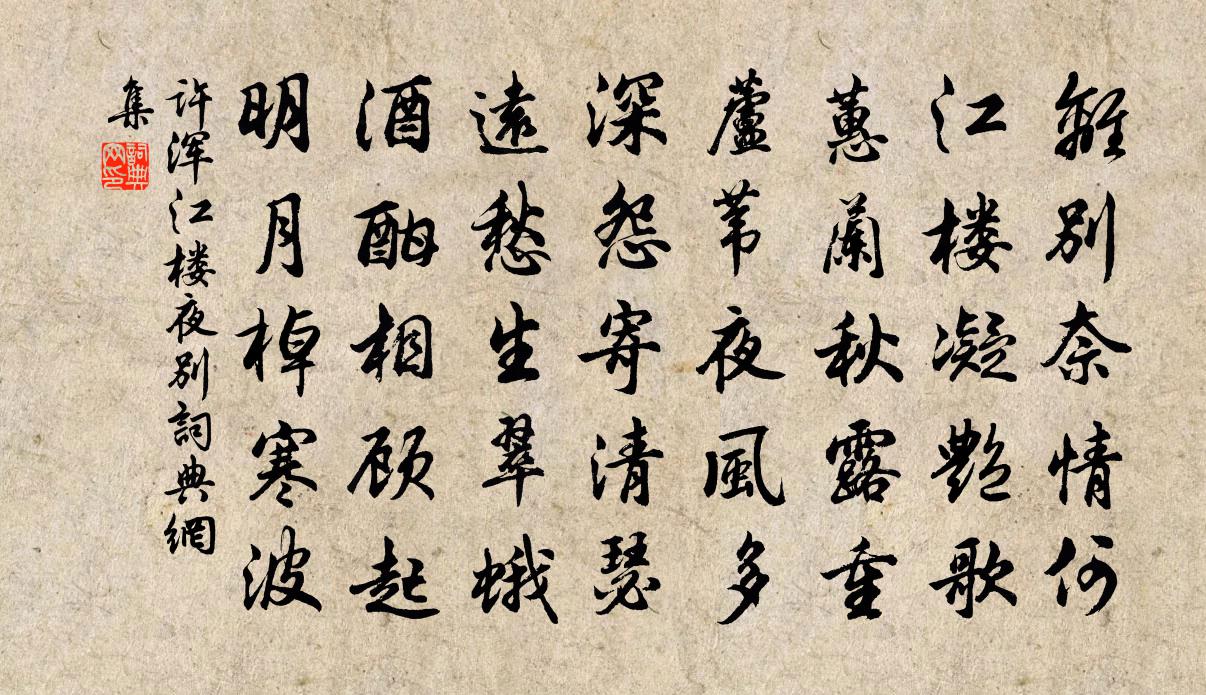 離別奈情何
江楼凝艷歌
蕙蘭秋露重
蘆苇夜風多
深怨寄清瑟
遠愁生翠蛾
酒酣相顾起
明月棹寒波
许浑江楼夜别詞典網
集
詞典
网印